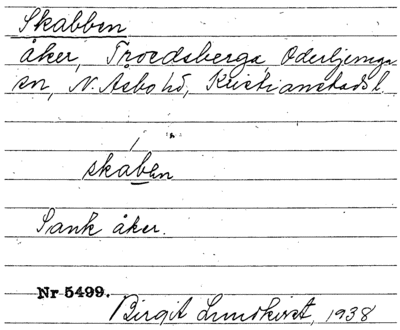 Skabben
åker, Troedsberga, Oderljunga
sn, N. Åsbo hd, Kristianstads l.
skaben
Sank åker.
Nr 5499.
Birgit Lundkvist, 1938